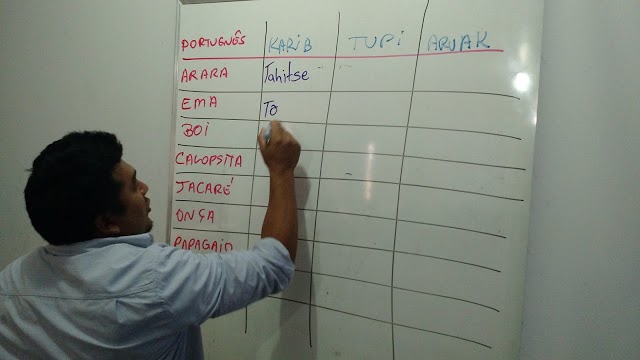 PORTUGUÊS KARIB TUPI ARUAK
ARARA Tahitse
EMA TO
BOI
CALOPSITA
JACARÉ
ONÇA
PAPAGAIO